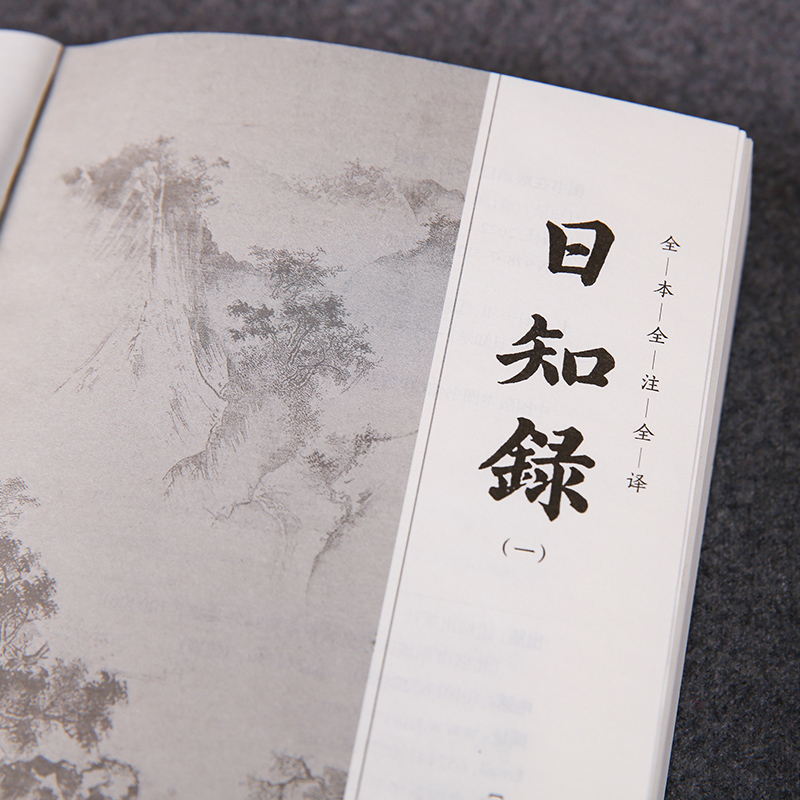 日知録
（一）
全—本—全—注—全—译